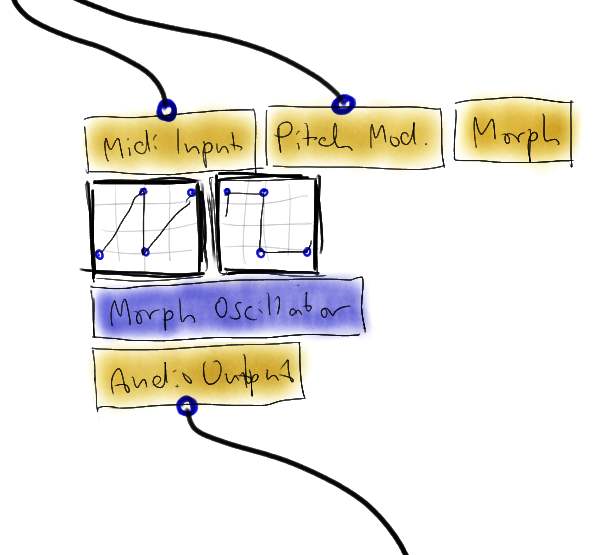 Midi Input
Pitch Mod.
Morph
Morph Oscillator
Audio Output